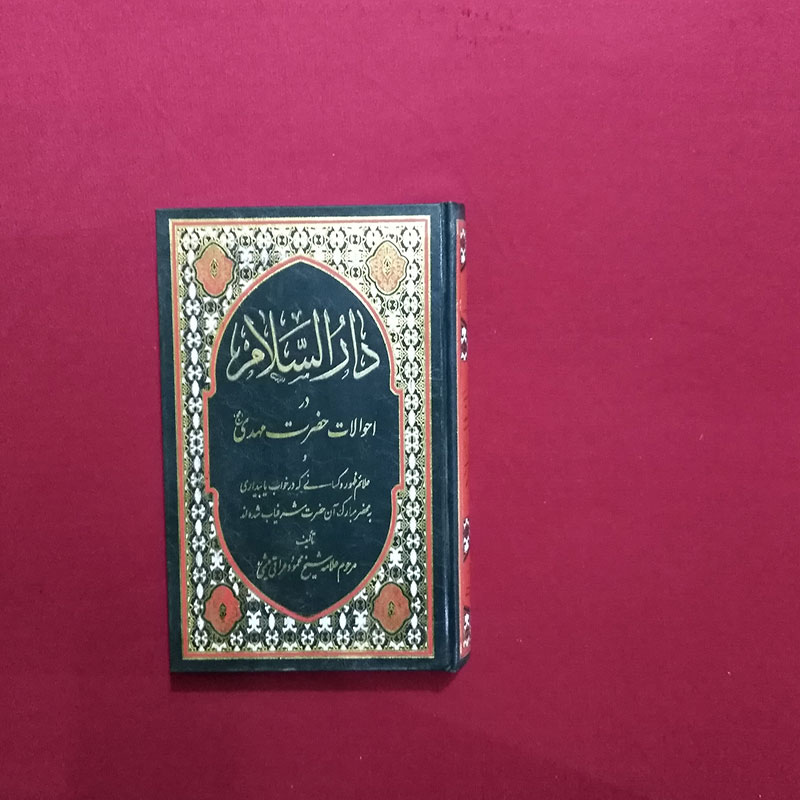 دارُ السَّلام
در
احوالات حضرت مهدی (عج)
و
علائم ظهور و کسانی که در خواب یا بیداری
به محضر مبارک آن حضرت شرفیاب شده‌اند
تألیف
مرحوم علامه شیخ محمود عراقی میثمی